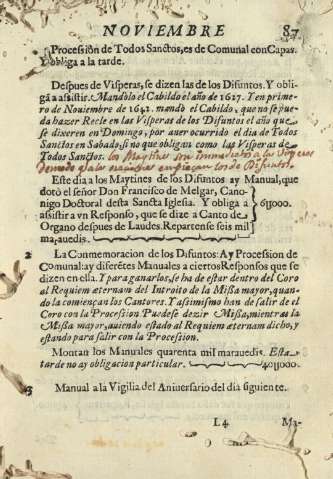 NOVIEMBRE 87
1 Procession de Todos Sanctos, es de Comunal con Capas.
Y obliga a la tarde.
Despues de Visperas, se dizen las de los Difuntos. Y obli-
ga a asistir. Mandòlo el Cabildo el año de 1617. Y en prime-
ro de Noviembre de 1642. mandò el Cabildo, que no se pue-
da hazer Recle en las Visperas de los Difuntos el año que
se dixeren en Domingo, por auer ocurrido el dia de Todos
Sanctos en Sabado, sino que obligan como las Visperas de
Todos Sanctos. los Maytines son immediatos a las Visperas
Este dia a los Maytines de los Difuntos ay Manual, que
dotò el señor Don Francisco de Melgar, Cano-
nigo Doctoral desta Sancta Iglesia. Y obliga a 6U000.
asistir a vn Responso, que se dize a Canto de
Organo despues de Laudes. Repartense seis mil
marauedis.
2 La Conmemoracion de los Difuntos: Ay Procession de
Comunal: ay diferētes Manuales a ciertos Responsos que se
dizen en ella. Y para ganarlos, se ha de estar dentro del Coro
al Requiem æternam del Introito de la Missa mayor, quan-
do la comiençan los Cantores. Y assimismo han de salir de el
Coro con la Procession Puedese dezir Missa, mientras la
Missa mayor, auiendo estado al Requiem æternam dicho, y
estando para salir con la Procession.
Montan los Manuales quarenta mil marauedis. Esta
tarde no ay obligacion particular. 40U000.
3 Manual a la Vigilia del Aniversario del dia siguiente.
L4 Ma-